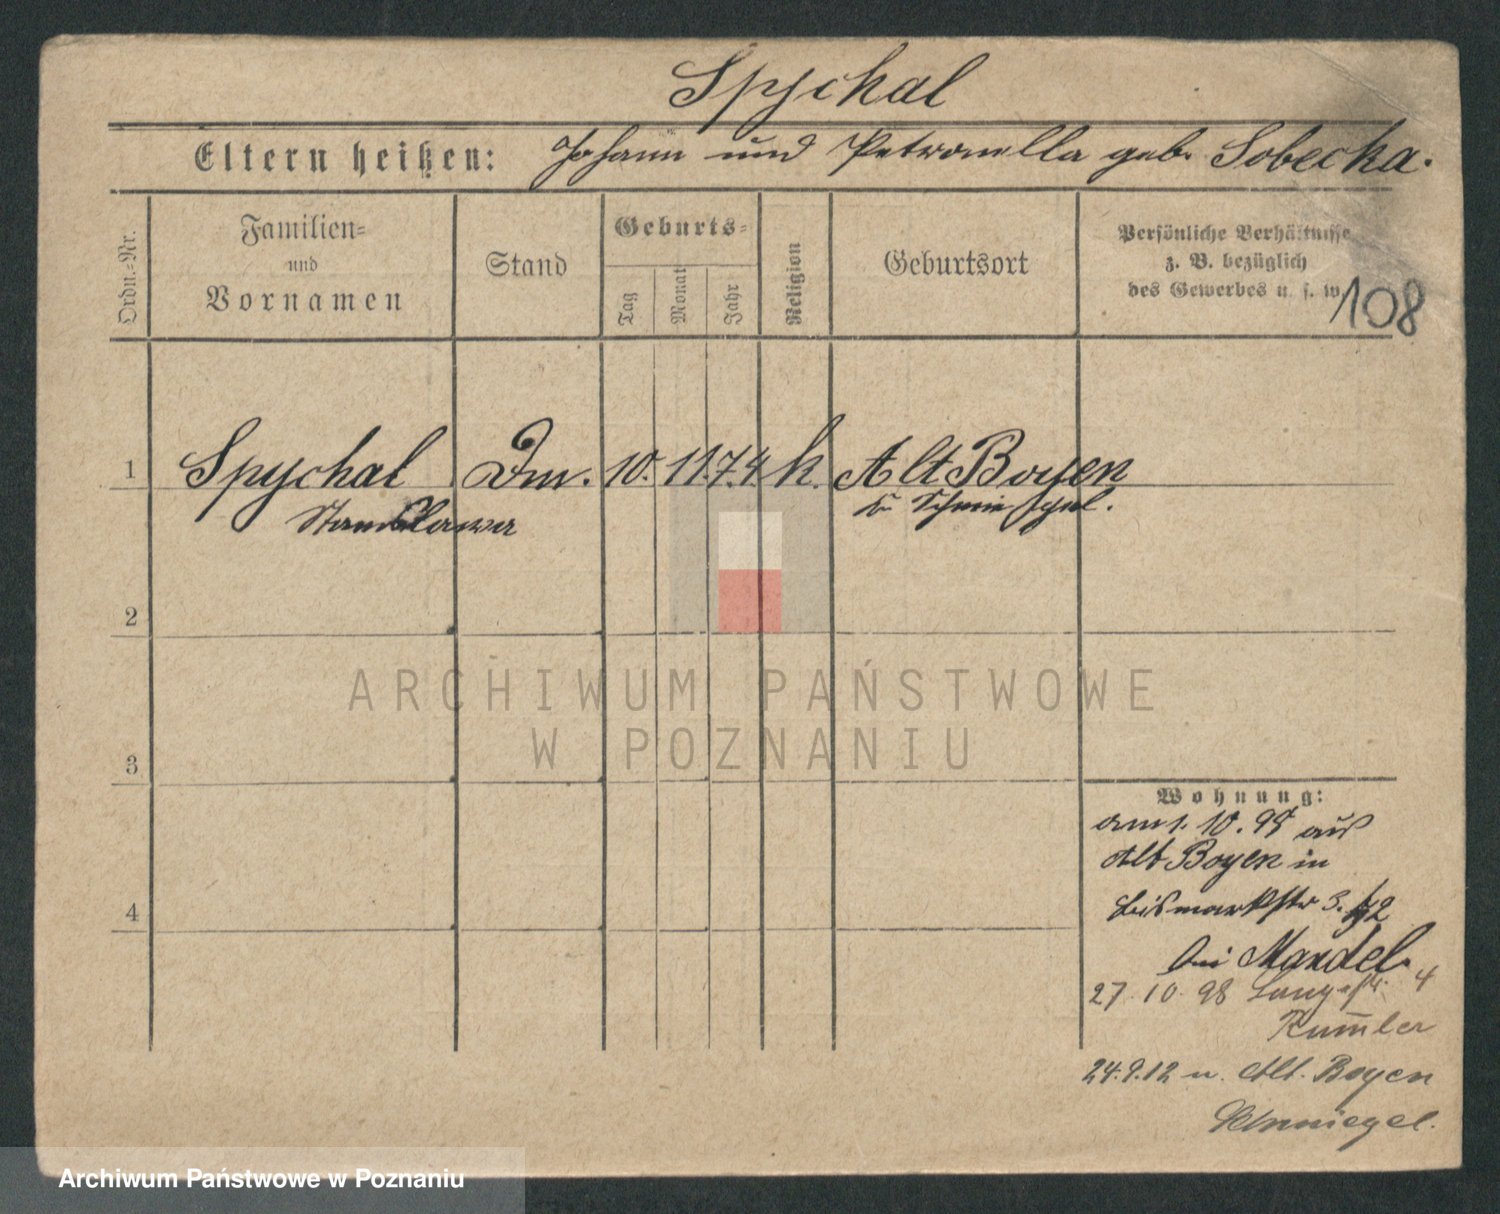 Spychal
Eltern heißen: Johann und Petronella geb. Sobecka.
Ordn.=Nr.
Familien=
und
Vornamen
Stand
Geburts=
Tag
Monat
Jahr
Religion
Geburtsort
Persönliche Verhältnisse
z. B. bezüglich
des Gewerbes u. s. w.
108
1 Spychal 10. 11. 74 k. Alt Boyen
Stanislawa
2
3
4
Wohnung:
am 1. 10. 95 aus
Alt Boyen in
Bismarkstr 3.
bei Mandel.
27. 10. 98 4
Rum̅ler
24.9.12 n. Alt. Boyen
Schmiegel.
ARCHIWUM PAŃSTWOWE
W POZNANIU
Archiwum Państwowe w Poznaniu